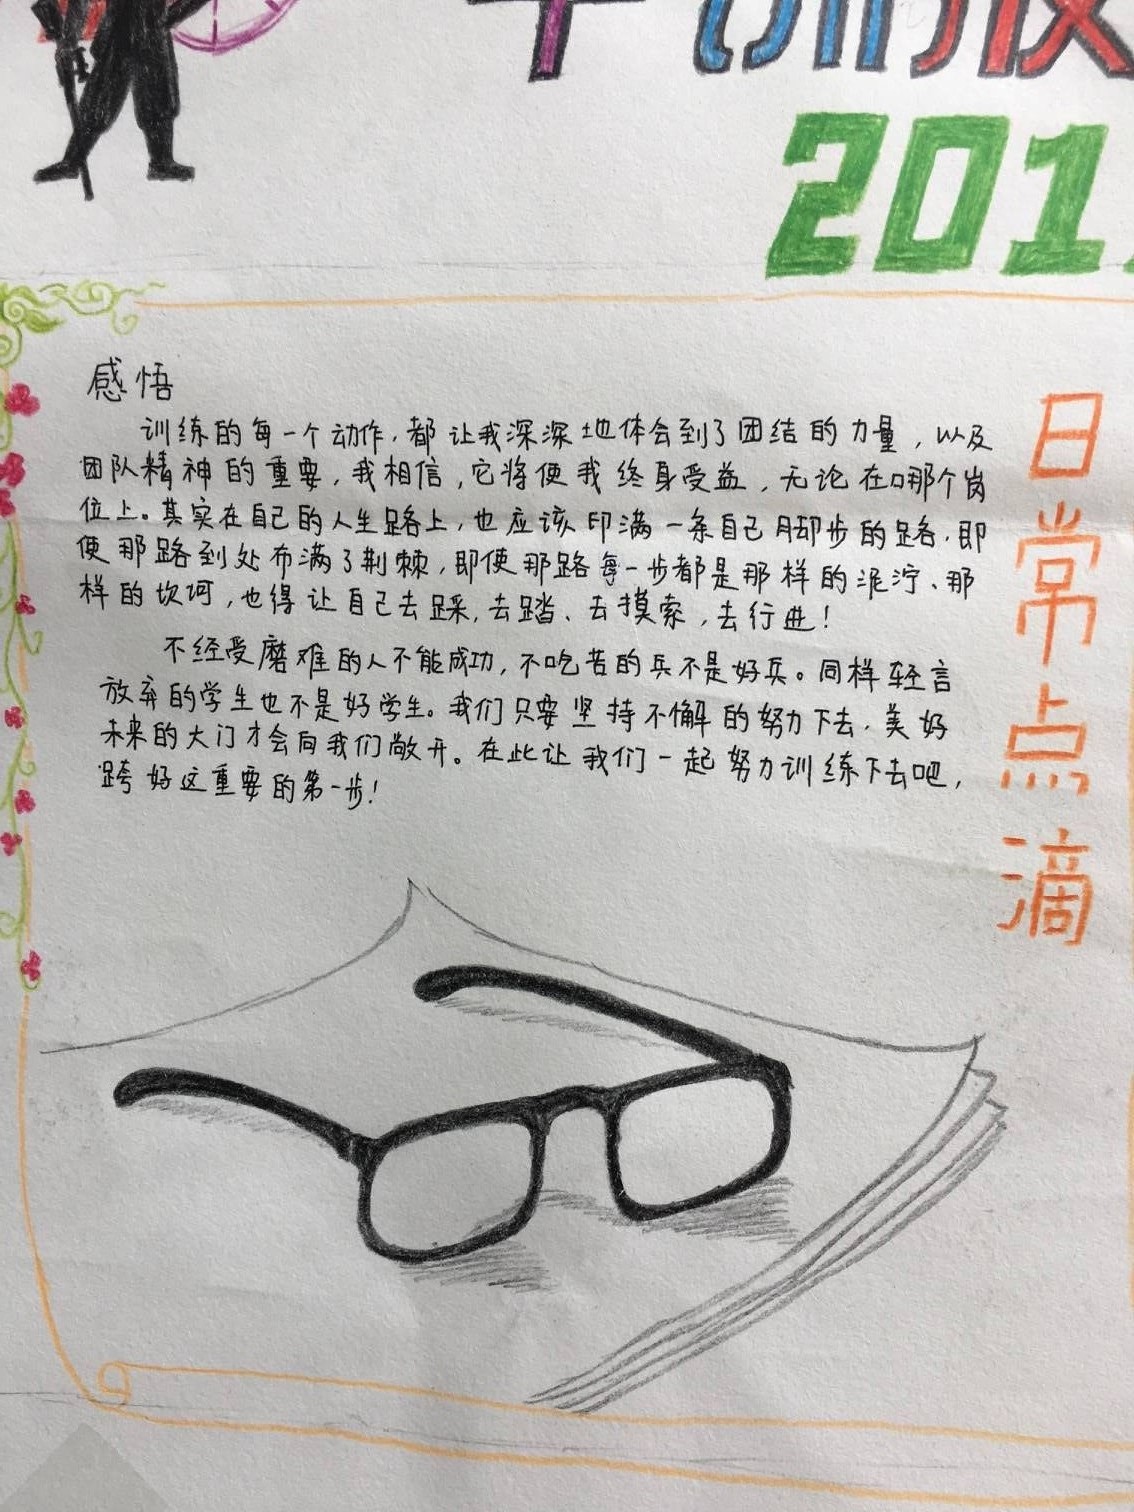 军训报
201
感悟
训练的每一个动作,都让我深深地体会到了团结的力量,以及
团队精神的重要,我相信,它将使我终身受益,无论在哪个岗
位上。其实在自己的人生路上,也应该印满一条自己脚步的路,即
使那路到处布满了荆棘,即使那路每一步都是那样的泥泞、那
样的坎坷,也得让自己去踩,去踏、去摸索,去行进!
不经受磨难的人不能成功,不吃苦的兵不是好兵。同样轻言
放弃的学生也不是好学生。我们只要坚持不懈的努力下去,美好
未来的大门才会向我们敞开。在此让我们一起努力训练下去吧,
跨好这重要的第一步!
日常点滴